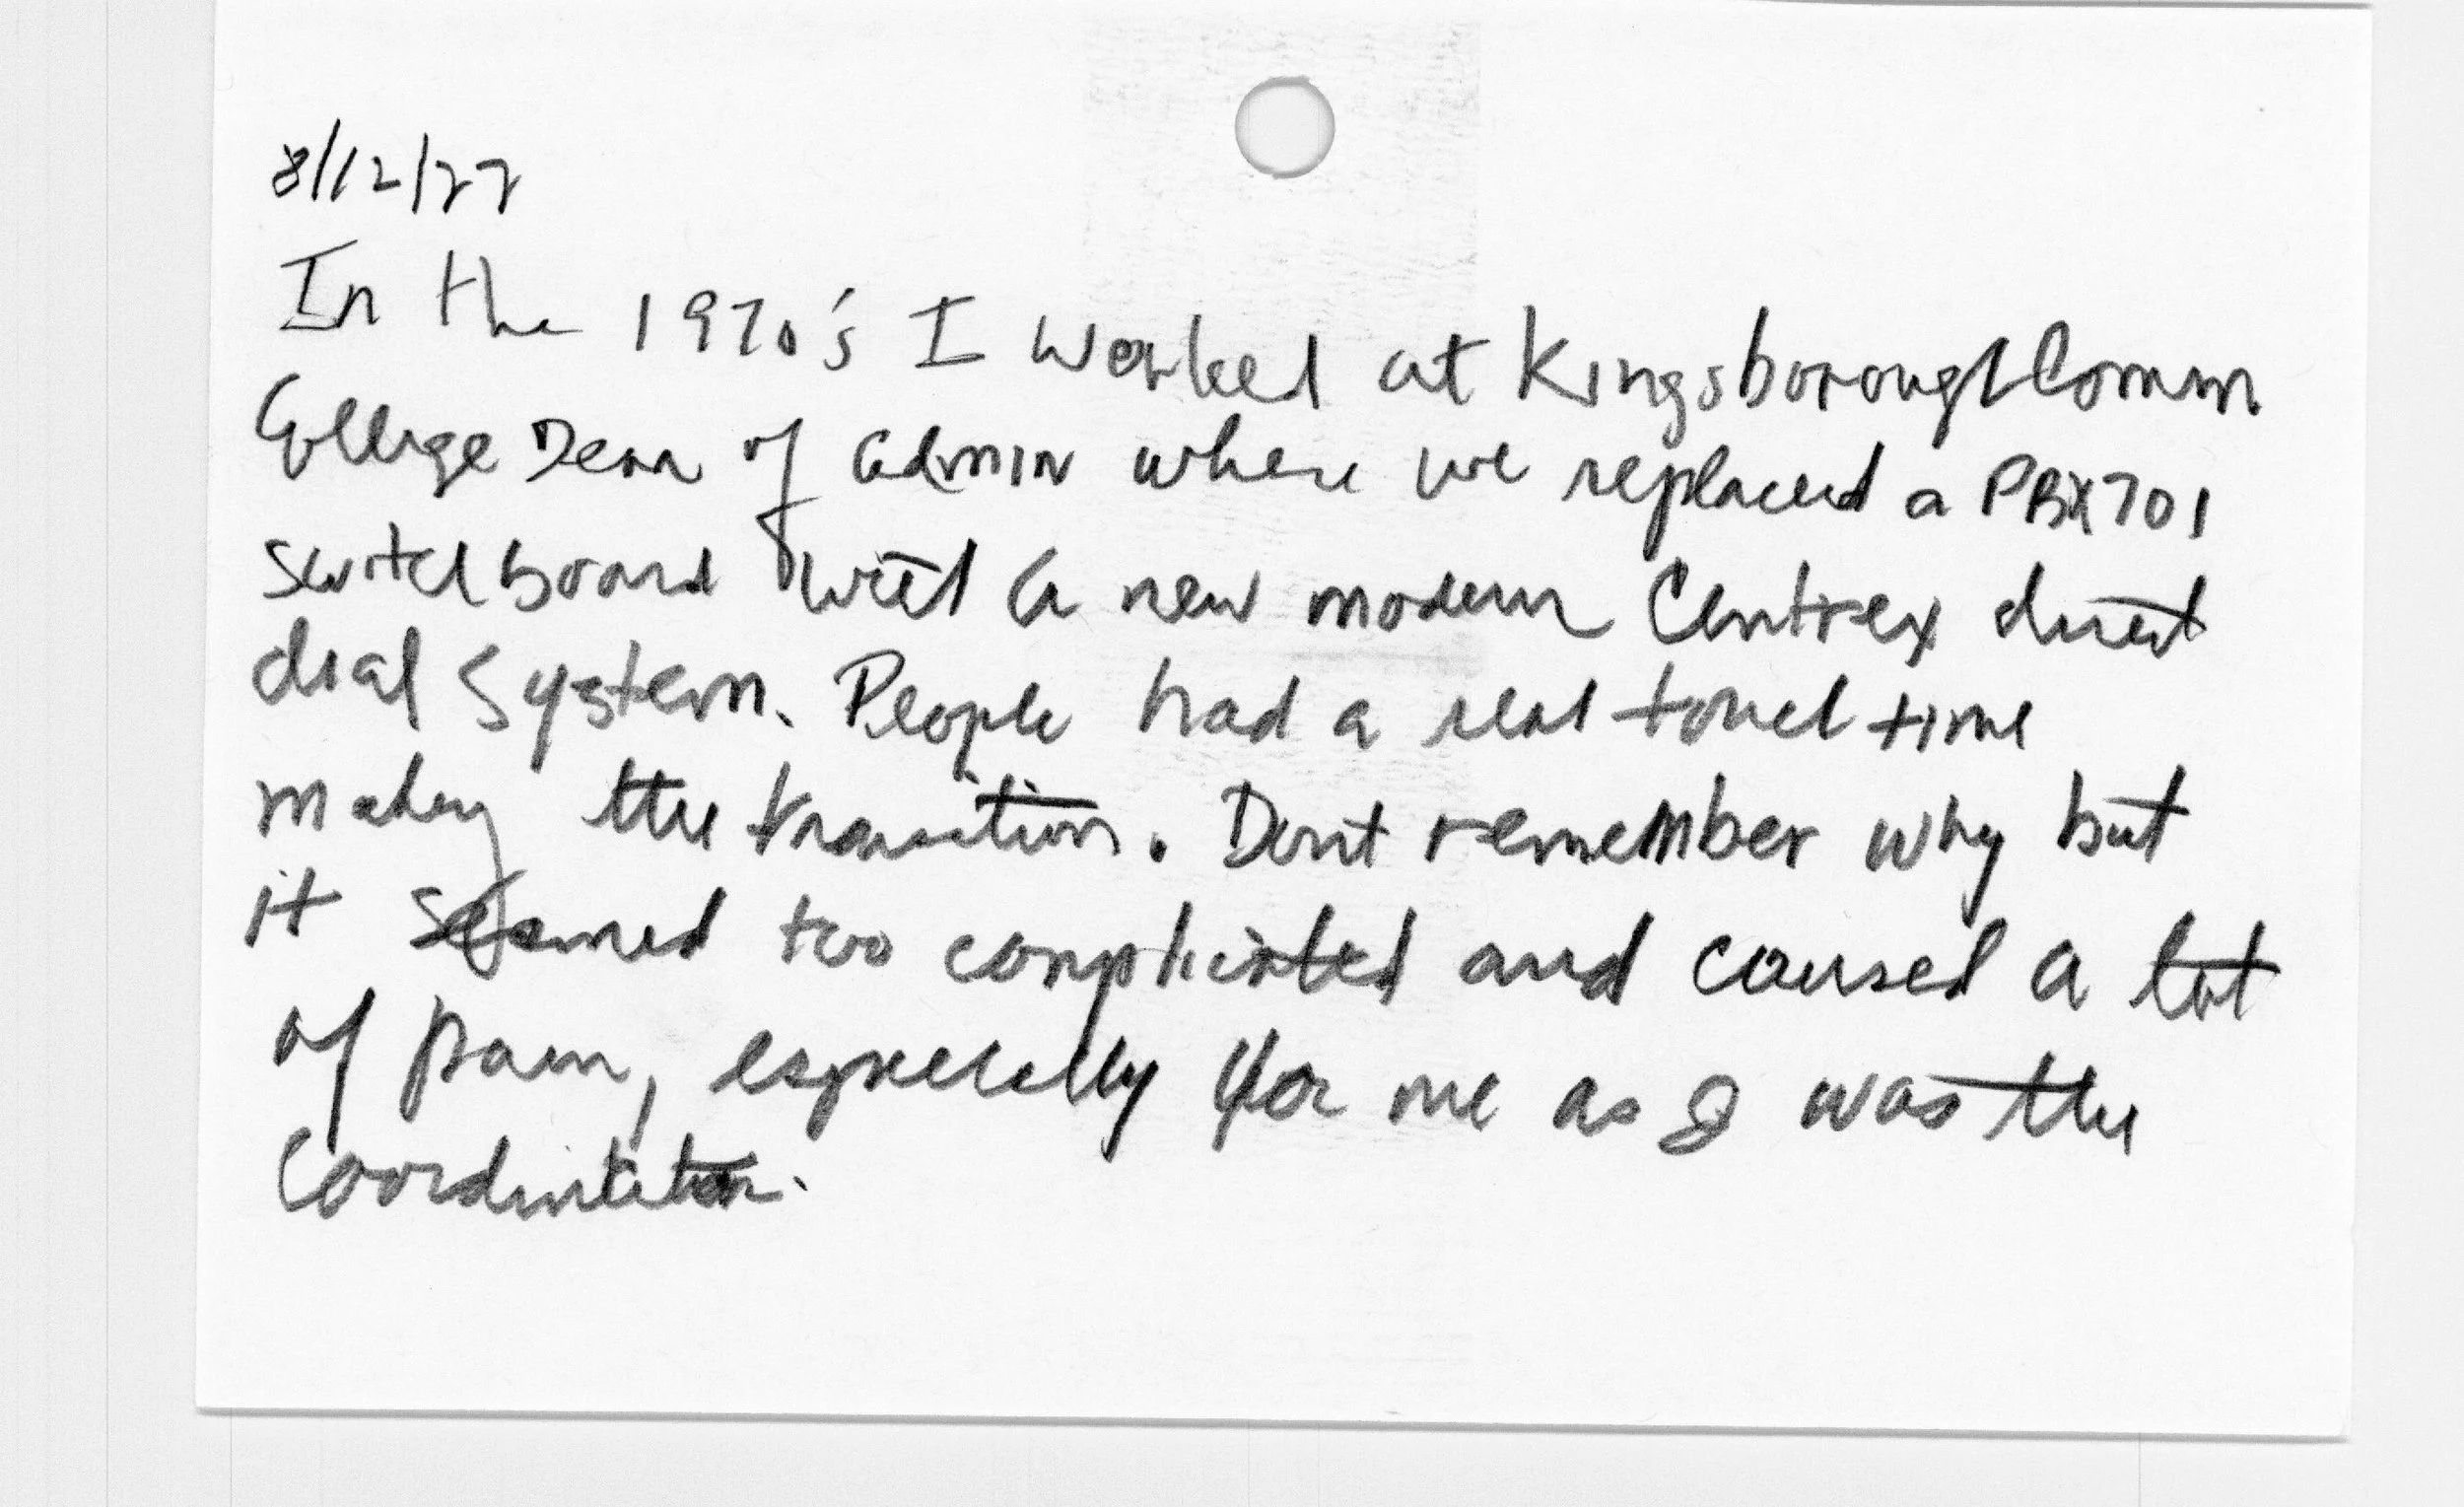 8/12/22
In the 1970's I worked at Kingsborough Comm
College Dean of Admin where we replaced a PBX701
switchboard with a new modern Centrex direct
dial system. People had a real tough time
making the transition. Dont remember why but
it seemed too complicated and caused a lot
of pain, especially for me as I was the
Coordinator.